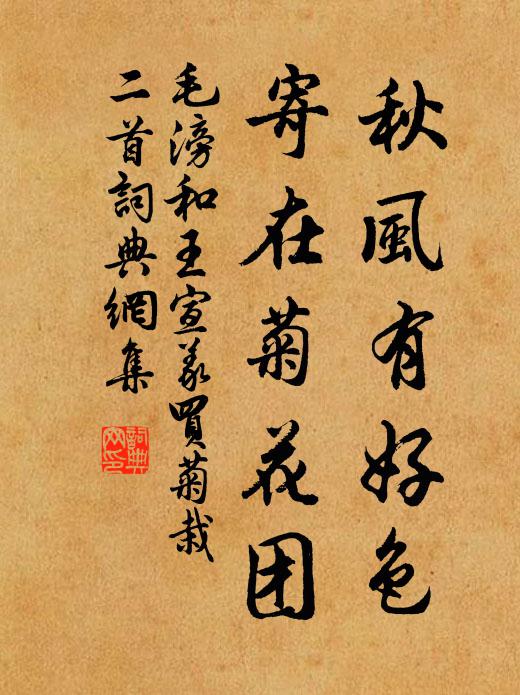 秋風有好色
寄在菊花团
毛滂和王宣義買菊栽
二首詞典網集
詞典
网印